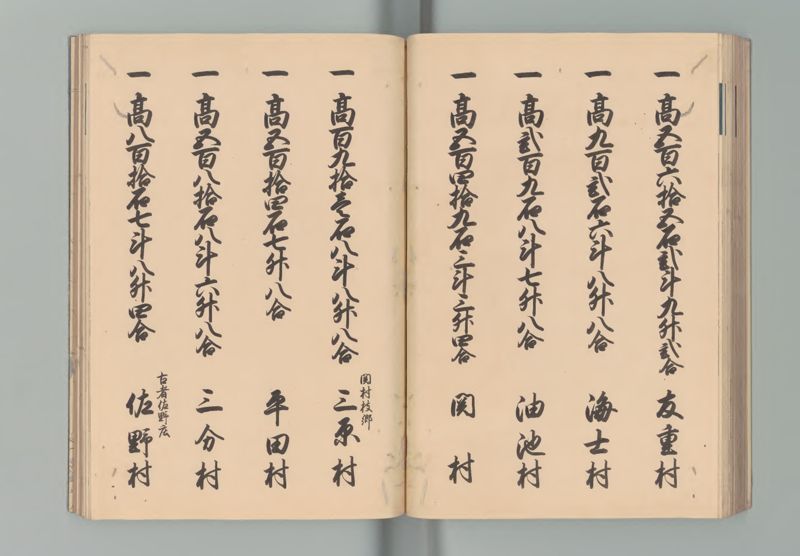 一 高五百六拾五石弐斗九升弐合 友重村
一 高九百弐石六斗八升八合 海士村
一 高弐百九石八斗七升八合 油池村
一 高五百四拾九石三斗三升四合 関村
一 高百九拾壱石八斗八升八合 関村枝郷 三原村
一 高五百拾四石七升八合 平田村
一 高五百八拾石八斗六升八合 三分村
一 高八百拾石七斗八升四合 古者佐野庄 佐野村